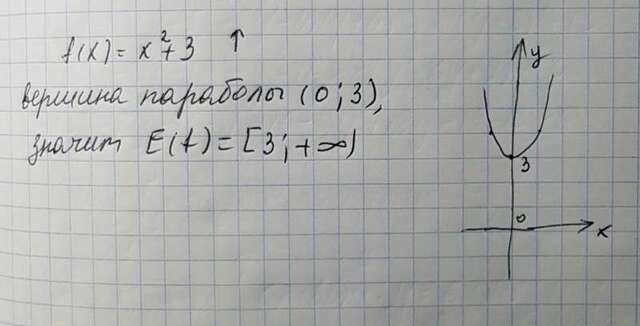 f(x) = x² + 3 ↑
вершина параболы (0; 3),
значит E(f) = [3; +∞)
y
3
0
x